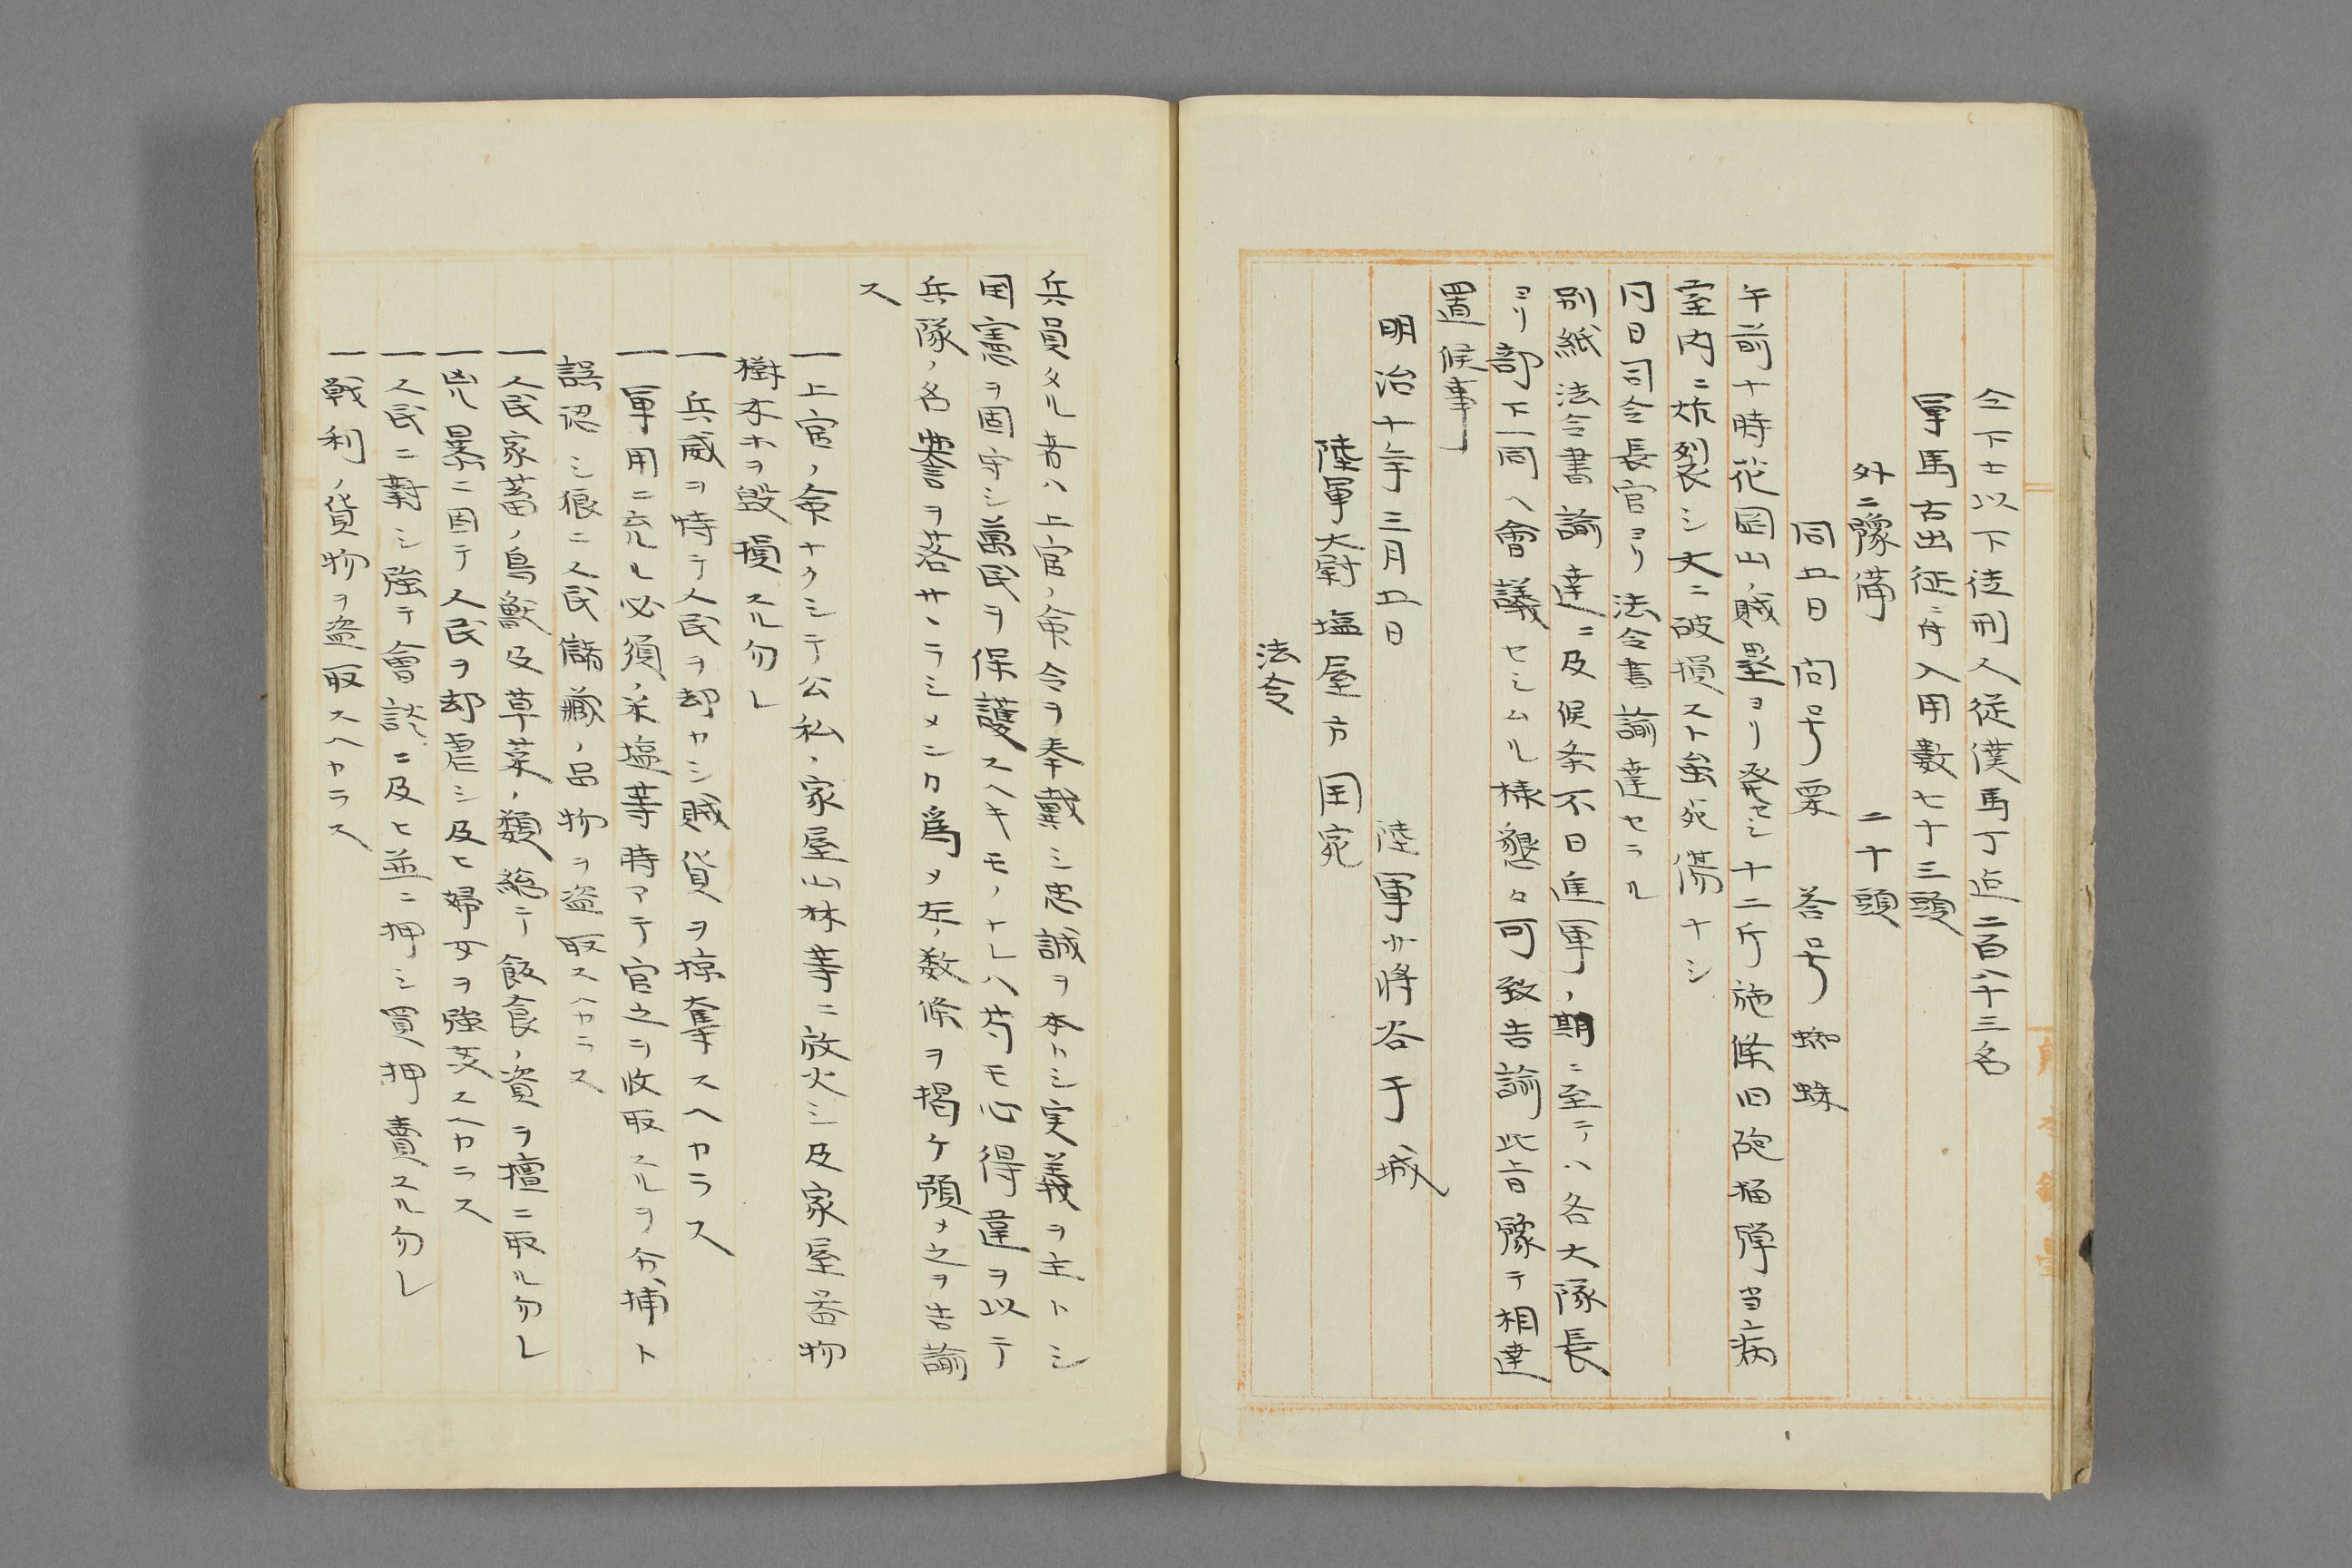 仝下士以下徒刑人従僕馬丁迠二百六十三名
軍馬古出征ニ付入用數七十三頭
外ニ豫備 二十頭
同五日 问号粟 答号蜘蛛
午前十時花园山ノ賊塁ヨリ発セシ十二斤施條四砲榴弾当病
室内ニ於裂シ大ニ破損ス卜虽死傷ナシ
同日司令長官ヨリ法令書諭達セラル
別紙法令書諭達ニ及候条不日進軍ノ期ニ至テハ各大隊長
ヨリ部下一同ヘ會議セシムル様懇々可致告諭此旨豫テ相達
置候事
明治十年三月五日 陸軍少将谷干城
陸軍大尉塩屋方国宛
法令
兵員タル者ハ上官ノ命令ヲ奉戴シ忠誠ヲ本トシ実義ヲ主トシ
国憲ヲ固守シ萬民ヲ保護スヘキモノナレハ苟モ心得違ヲ以テ
兵隊ノ名誉ヲ落サヽラシメンカ爲メ左ノ数條ヲ掲ケ預メ之ヲ告諭
ス
一上官ノ命ナクシテ公私ノ家屋山林等ニ放火シ及家屋器物
樹木ホヲ毀損スル勿レ
一兵威ヲ恃テ人民ヲ却カシ賊貨ヲ掠奪スヘカラス
一軍用ニ充ル必須ノ米塩等時アテ官之ヲ收取スルヲ分捕ト
誤認シ猥ニ人民儲藏ノ品物ヲ盗取スヘカラス
一人民家蓄ノ鳥獣及草菜ノ類総テ飯食ノ資ヲ擅ニ取ル勿レ
一兇暴ニ因テ人民ヲ却虐シ及ヒ婦女ヲ強姦スヘカラス
一人民ニ對シ強テ會談ニ及ヒ並ニ押シ買押賣スル勿レ
一戦利ノ貨物ヲ盗取スヘカラス